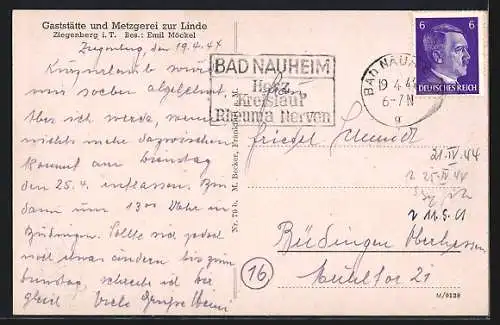 Gaststätte und Metzgerei zur Linde
Ziegenberg i. T. Bes.: Emil Möckel
Ziegenberg, den 19.4.44
Kurzurlaub wurde
mir soeben abgelehnt.
Aber ich werde, wenn
nichts mehr dazwischen
kommt am Dienstag
den 25.4. entlassen. Bin
dann um 13 00 Uhr in
Büdingen. Sollte sich jedoch
noch etwas ändern bis zum
Dienstag, schreibe ich Dir
gleich. Viele Grüße Heini
Nr. 79 b. M. Becker, Frankfurt a. M.
BAD NAUHEIM
Herz
Kreislauf
Rheuma Nerven
BAD NAUHEIM
19.4.44
6-7N
g
6 6
DEUTSCHES REICH
Friedel Schmidt
21.IV.44
25.IV.44
Büdingen Oberhessen
16
Mühltor 21
M/0128